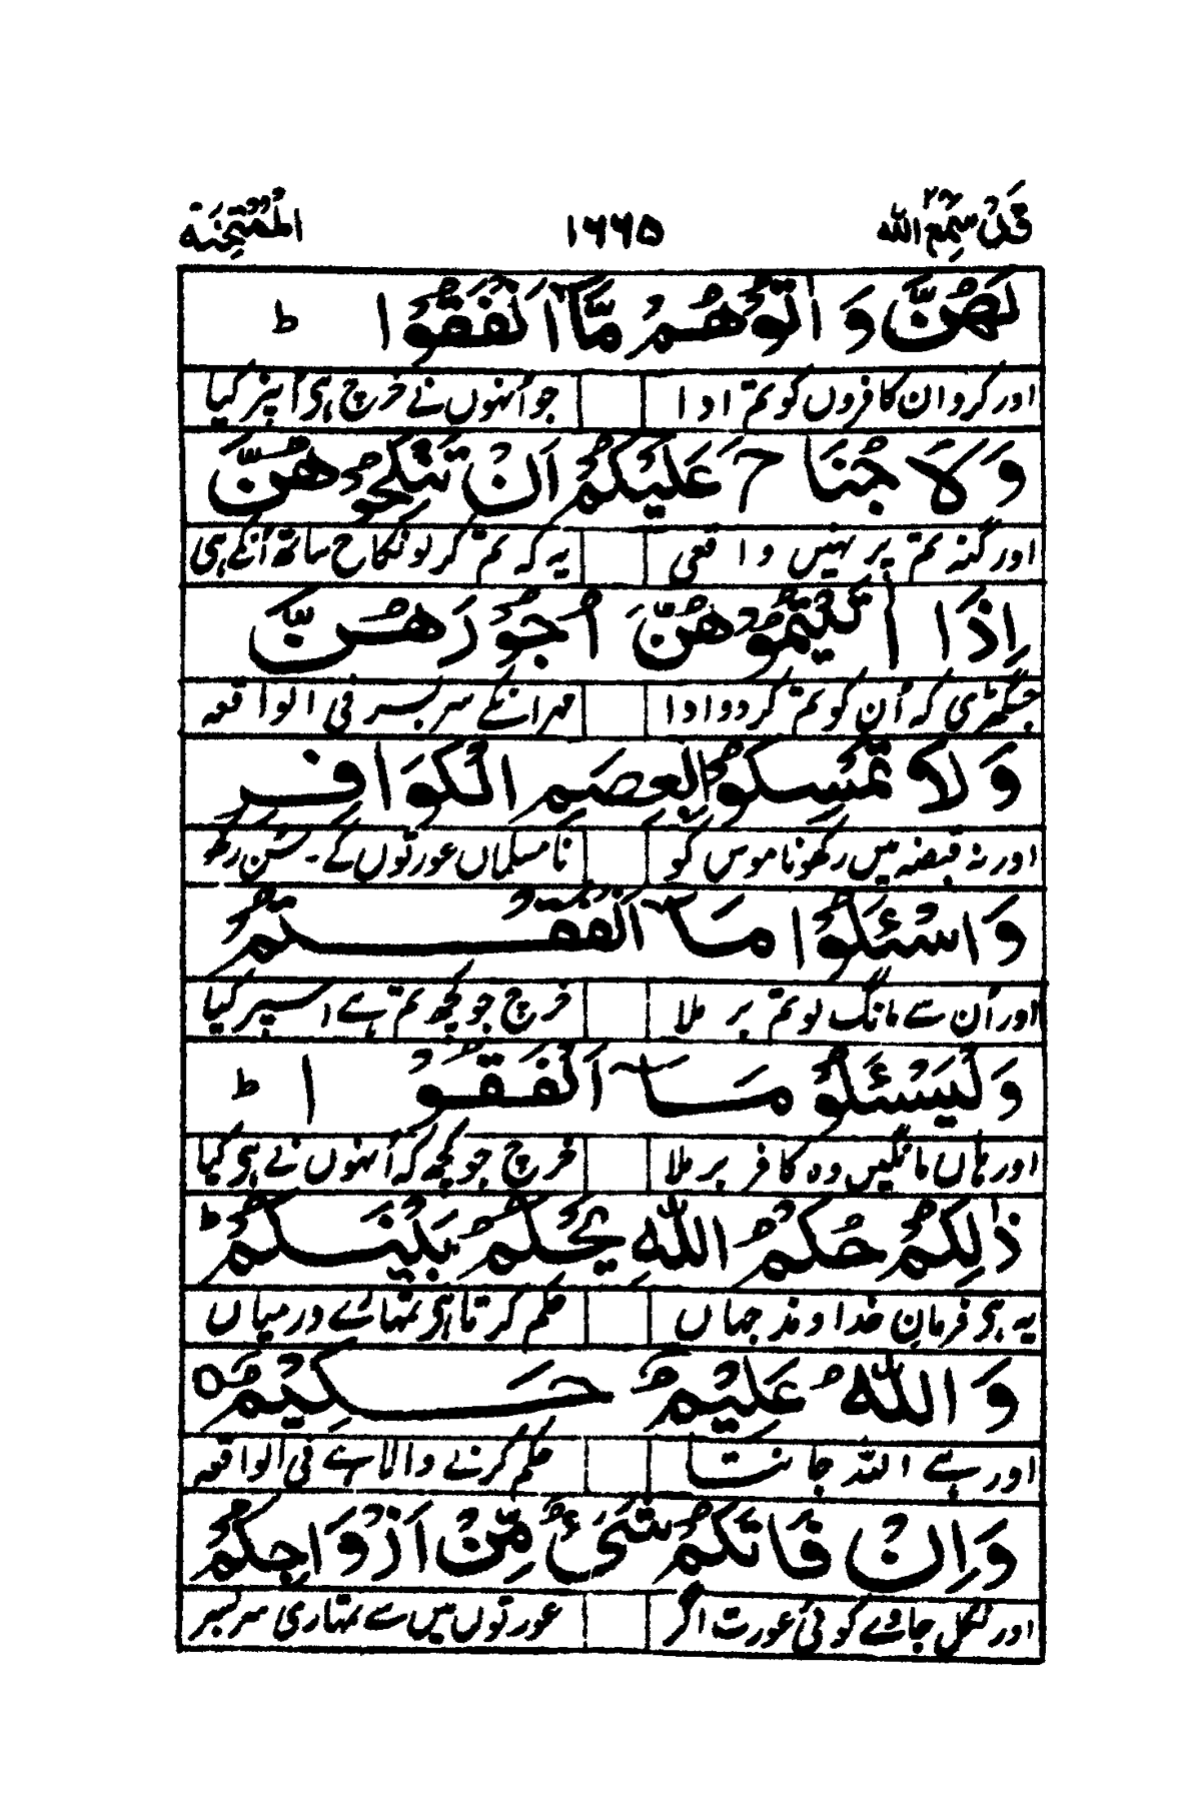 قَدْ سَمِعَ اللهُ ٢٨ ١٦٦٥ الْمُمْتَحِنَة
لَهُنَّ وَاٰتُوْهُمْ مَّآ اَنْفَقُوْا ط
اور کردو ان کافروں کو تم ادا جو اُنہوں نے خرچ ہی اُنپر کیا
وَلَا جُنَاحَ عَلَيْكُمْ اَنْ تَنْكِحُوْهُنَّ
اور گنہ تم پر نہیں واقعی یہ کہ تم کر لو نکاح ساتھ اُنکے ہی
اِذَآ اٰتَيْتُمُوْهُنَّ اُجُوْرَهُنَّ
جسگھڑی کہ اُن کو تم کردو ادا مہر انکے سر بسر فی الواقعہ
وَلَا تُمْسِكُوْا بِعِصَمِ الْكَوَافِرِ
اور نہ قبضہ میں رکھو ناموس کو نامسلماں عورتوں کے۔ سُن رکھو
وَاسْئَلُوْا مَآ اَنْفَقْتُمْ
اور اُن سے مانگ لو تم بر ملا خرچ جو کچھ تم نے اسپر کیا
وَلْيَسْئَلُوْا مَآ اَنْفَقُوْا ط
اور ہاں مانگیں وہ کافر بر ملا خرچ جو کچھ کہ اُنہوں نے ہی کیا
ذٰلِكُمْ حُكْمُ اللهِ يَحْكُمُ بَيْنَكُمْ ط
یہ ہی فرمانِ خداوند جہاں حکم کرتا ہی تمہارے درمیاں
وَاللهُ عَلِيْمٌ حَكِيْمٌ ○
اور ہے اللہ جانتا حکم کرنے والا ہے فی الواقعہ
وَاِنْ فَاتَكُمْ شَىْءٌ مِّنْ اَزْوَاجِكُمْ
اور نکل جائے کوئی عورت اگر عورتوں میں سے تمہاری سر بسر